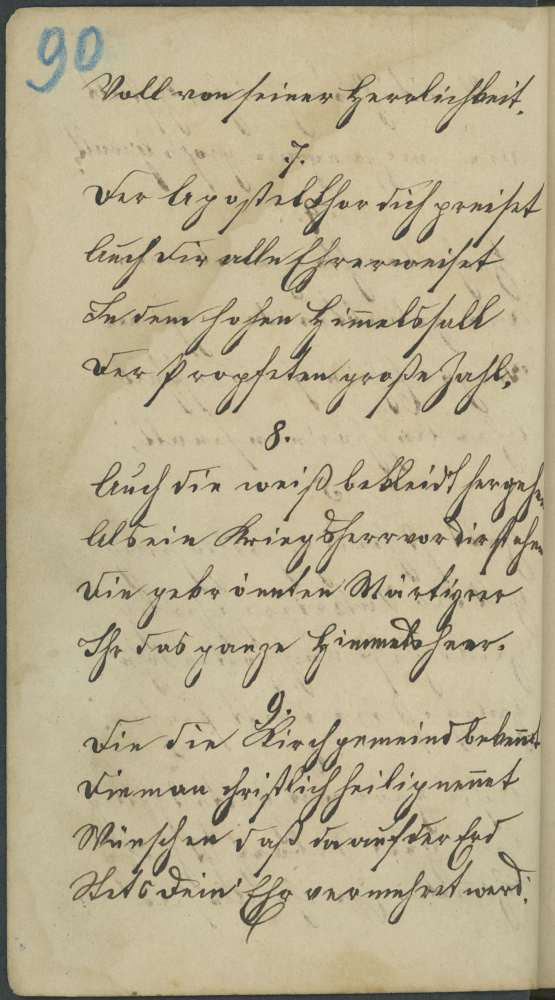 90
Voll von seiner Herrlichkeit.
7.
Der Apostel Chor dich preiset
Auch dir alle Ehr erweiset
In dem hohen Himelssall
Der Propheten große Zahl.
8.
Auch die weiß bekleidt hergehe
Als ein Kriegsherr vor dir stehn
Die gekrönnten Märtyrer
Ihr das ganze Himmelsheer.
9.
Die die Kirchgemeind bekennt
Die man christlich heilig nennet
Wünschen daß da auf der Erd
Stets dein' Ehr vermehret werd.